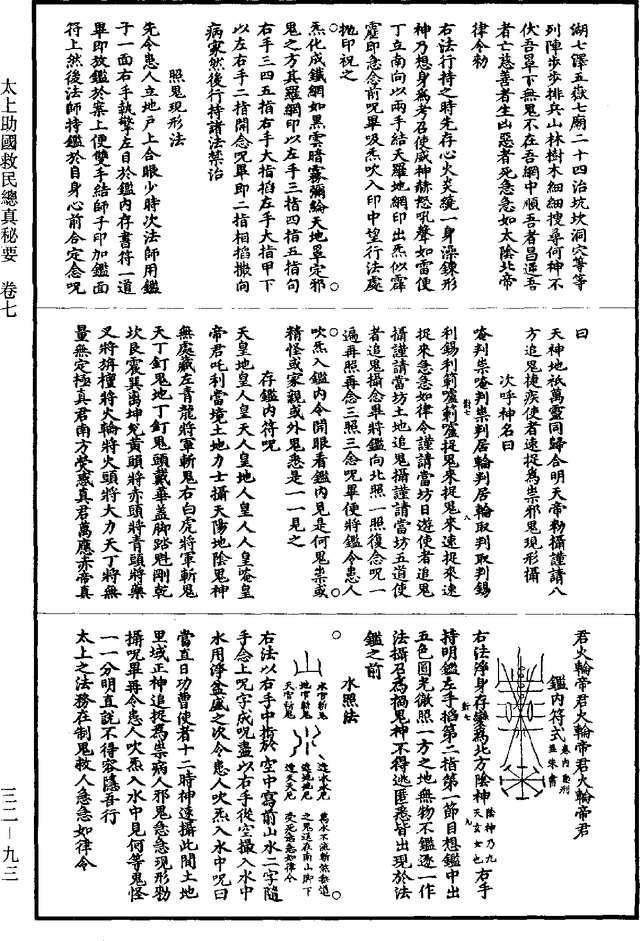 湖七澤五嶽七廟二十四治坑坎洞穴等等
列陣步步排兵山林樹木細細搜尋何神不
伏吾罩下無鬼不在吾網中順吾者昌逆吾
者亡慈善者生凶惡者死急急如太陰北帝
律令勑
右法行持之時先存心火炎繞一身澡鍊形
神乃想身為考召使威神赫怒吼聲如雷便
丁立南向以兩手結天羅地網印出炁似霹
靂即急念前呪畢吸炁吹入印中望行法處
拋印祝之
炁化成鐵網如黑雲暗霧彌綸天地罩定邪
鬼之方其羅網印以左手三指四指五指勾
右手三四五指右手大指掐左手大指甲下
以左右手二指開念呪畢即二指相掐撒向
病家然後行持諸法禁治
照鬼現形法
先令患人立地戶上合眼少時次法師用鑑
子一面右手執擎左目於鑑內存書符一道
畢即放鑑於案上便雙手結師子印加鑑面
符上然後法師持鑑於自身心前合定念呪
曰
天神地祇萬靈同歸合明天帝勑攝謹請八
方追鬼捷疾使者速捉為祟邪鬼現形攝
次呼神名曰
唵判祟唵判祟判居輪判居輪取判取判錫
利錫利薊嚧薊嚧捉鬼來捉鬼來速捉來速
捉來急急如律令謹請當坊日遊使者追鬼
攝謹請當坊土地追鬼攝謹請當坊五道使
者追鬼攝念畢將鑑向北照一照復念呪一
遍再照再念三照三念呪畢便將鑑令患人
吹炁入鑑內令開眼看鑑內見是何鬼祟或
精怪或家親或外鬼悉是一一見之
存鑑內符呪
天皇地皇人皇天人皇地人皇人人皇唵皇
帝君吒利當境土地力士攝天陽地陰鬼神
無處藏左青龍將軍斬鬼右白虎將軍斬鬼
天丁釘鬼地丁釘鬼頭戴華蓋脚踏魁剛乾
坎艮震巽離坤兌黃頭將赤頭將青頭將藥
叉將旃檀將火輪將火頭將大力天丁將無
量無定極真君南方熒惑真君萬應赤帝真
君火輪帝君火輪帝君火輪帝君
鑑內符式
右法淨身存變為北方陰神陰神乃九天玄女也右手
持明鑑左手掐第二指第一節目想鑑中出
五色圓光徹照一方之地無物不鑑逐一作
法攝召為禍鬼神不得逃匿悉皆出現於法
鑑之前
水照法
右法以右手中指於空中寫前山水二字隨
手念上呪字成呪畫以右手從空撮入水中
水用淨盆盛之次令患人吹炁入水中呪曰
當直日功曹使者十二時神速攝此間土地
里域正神追捉為祟病人邪鬼急急現形勑
攝呪畢再令患人吹炁入水中見何等鬼怪
一一分明直說不得容隱吾行
太上之法務在制鬼救人急急如律令
太上助國救民總真秘要 卷七
三二－九三